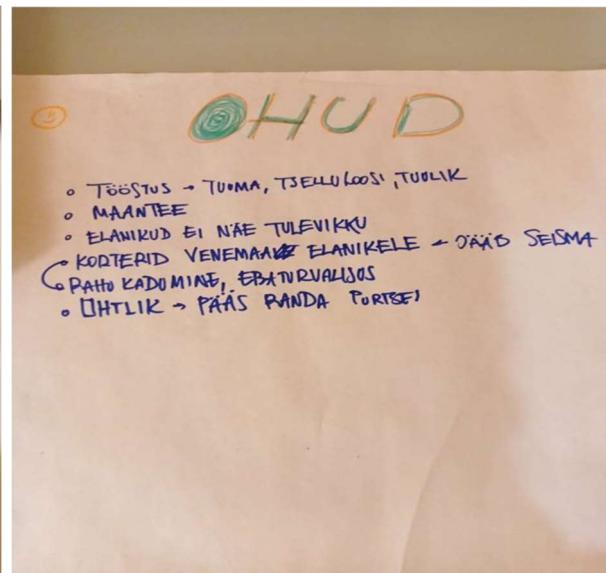 OHUD
• TÖÖSTUS → TUUMA, TSELLULOOSI, TUULIK
• MAANTEE
• ELANIKUD EI NÄE TULEVIKKU
• KORTERID VENEMAA ELANIKELE – JÄÄB SEISMA
• RAHU KADUMINE, EBATURVALISUS
• OHTLIK → PÄÄS RANDA PURTSEI